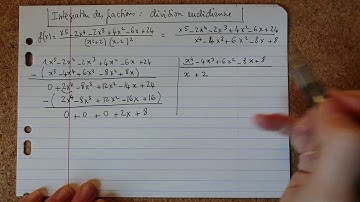 Intégration des fractions : division euclidienne
f(x) = x⁵ - 2x⁴ - 2x³ + 4x² - 6x + 24 / (x²+2)(x-2)² = x⁵ - 2x⁴ - 2x³ + 4x² - 6x + 24 / x⁴ - 4x³ + 6x² - 8x + 8
1x⁵ - 2x⁴ - 2x³ + 4x² - 6x + 24 | x⁴ - 4x³ + 6x² - 8x + 8
- (x⁵ - 4x⁴ + 6x³ - 8x² + 8x) | x + 2
0 + 2x⁴ - 8x³ + 12x² - 14x + 24
- (2x⁴ - 8x³ + 12x² - 16x + 16)
0 + 0 + 0 + 2x + 8